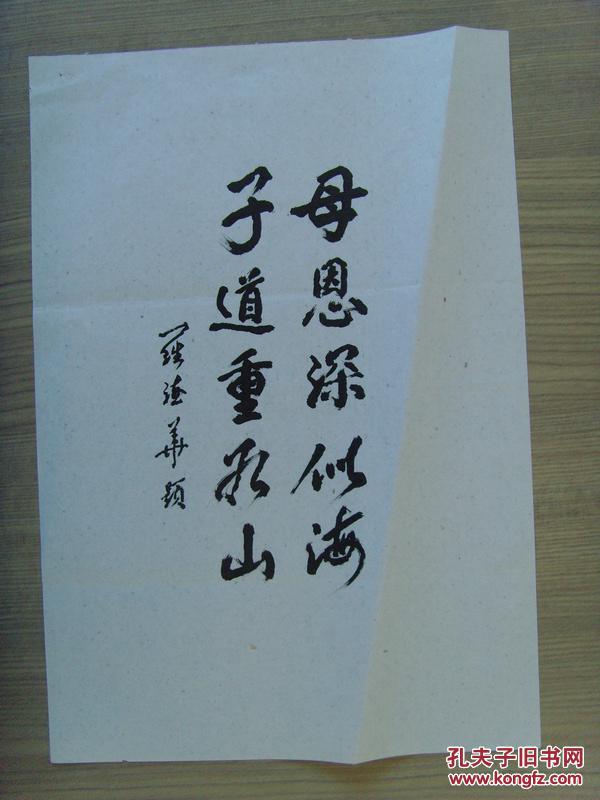 母恩深似海
子道重如山
羅德華題
孔夫子旧书网
www.kongfz.com